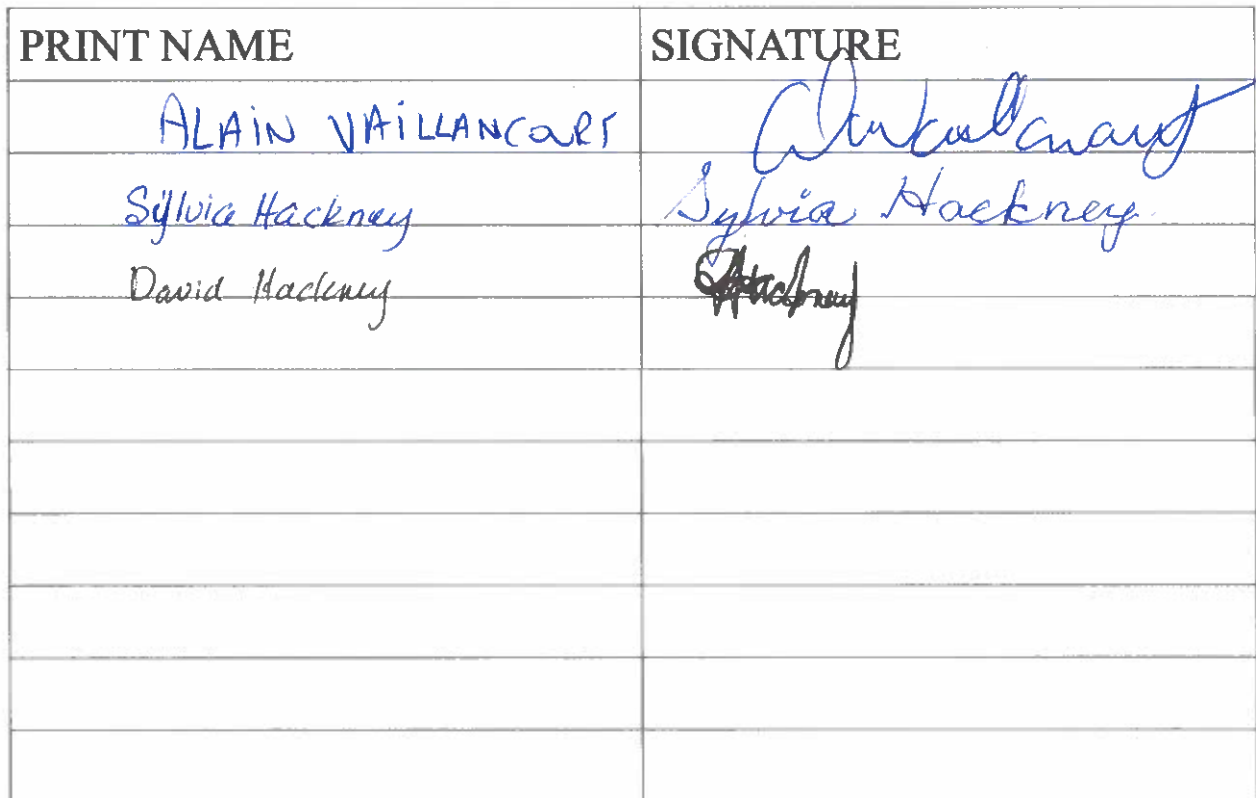 PRINT NAME SIGNATURE
ALAIN VAILLANCOURT
Sylvia Hackney Sylvia Hackney
David Hackney Hackney